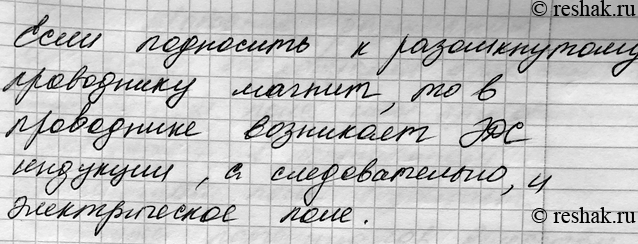 © reshak.ru
Если подносить к разомкнутому
проводнику магнит, то в
проводнике возникает ЭДС
индукции, а следовательно, и
электрическое поле.
© reshak.ru